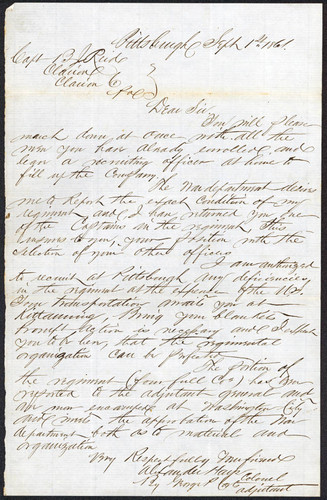 Pittsburgh Sept 1st 1861.
Capt B J Reid
Clarion
Clarion Co
Pa
Dear Sir
You will please
march down at once with all the
men you have already enrolled and
leave a recruiting officer at home to
fill up the Company.
The War department desires
me to report the exact condition of my
regiment, and I have returned you one
of the Captains in the regiment. This
insures to you, your position with the
selection of your other officers
I am authorized
to recruit at Pittsburgh any deficiencies
in the regiment at the expense of the U.S.
Your transportation awaits you at
Kittanning. Bring your blankets.
Prompt action is necessary and I expect
you to be here, that the regimental
organization can be perfected
The portion of
the regiment (four full Cos) has been
reported to the adjutant general and
are now encamped at Washington City
and meets the approbation of the War
department both as to material and
organization
Very Respectfully Your friend
Alexander Hays
Colonel
By adjutant